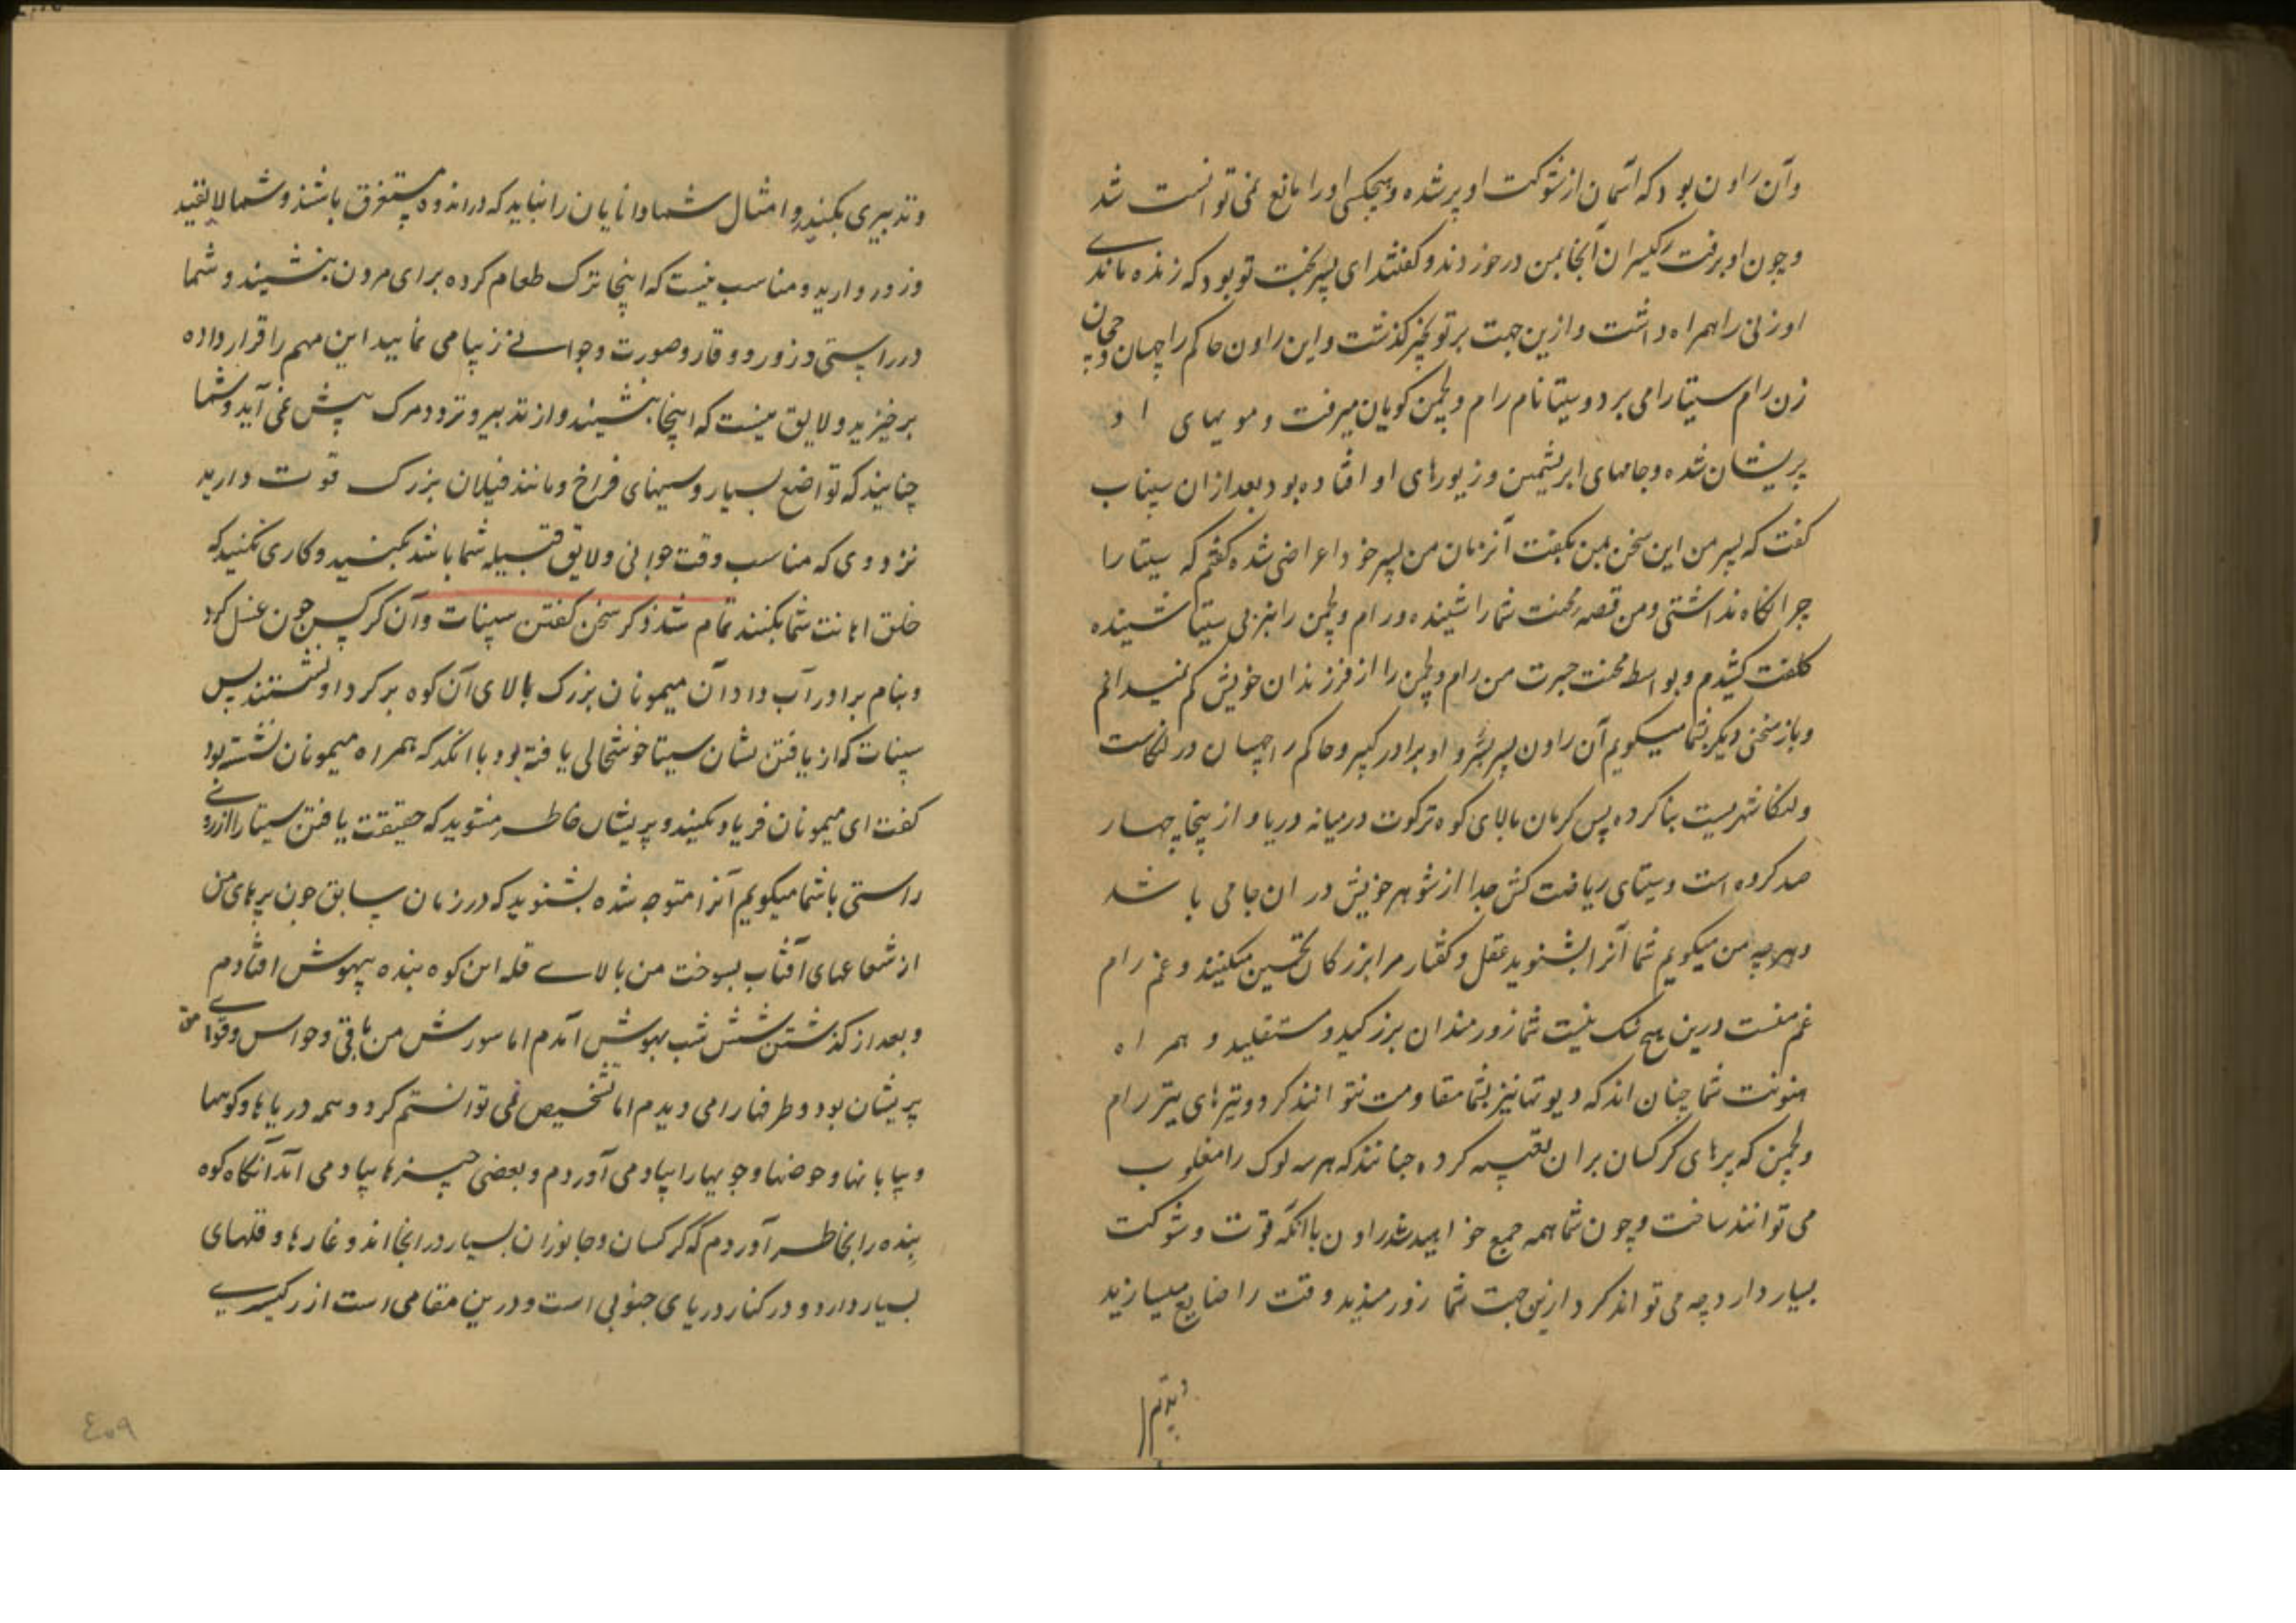 وآن راون بود که آسمان از شوکت او پر شده و هیچکس او را مانع نمی توانست شد
و چون او برفت رکیسران آنجا بمن در خوردند و گفتند ای پسر بخت تو بود که زنده ماندی
او زنی را همراه داشت و ازین جهت بر تو بخیر گذشت و این راون حاکم راچهسان
زن رام سیتا را می برد و سیتا نام رام و لچمن گویان میرفت و مویهای او
پریشان شده و جامهای ابریشمین و زیورهای او افتاده بود بعد ازان سپنات
گفت که پسر من این سخن بمن بگفت آنزمان من پسر خود اعراضی شده گفتم که سیتا را
چرا نگاه نداشتی و من قصه محنت شما را شنیده و رام و لچمن را نیز بی سیتا شنیده
کلفت کشیدم و بواسطه محنت جسرت من رام و لچمن را از فرزندان خویش کم نمیدانم
و باز سخنی دیگر بشما میگویم آن راون پسر بشرو او برادر کبیر و حاکم راچهسان در لنکاست
و لنکا شهریست بنا کرده بس کرمان بالای کوه ترکوت در میانه دریا و از ینجا چهار
صد کروه است و سیتای ریاضت کش جدا از شوهر خویش در ان جا می باشد
و هر چه من میگویم شما آنرا بشنوید عقل و گفتار مرا بزرگان تحسین میکنند و غم رام
غم منست درین هیچ شک نیست شما زورمندان بزرگید و مستقلید و همراه
هنونت شما چنان اند که دیوتها نیز بشما مقاومت نتوانند کرد و تیرهای تیز رام
و لچمن که پرهای کرکسان بران تعبیه کرده چنانند که هر سه لوک را مغلوب
می توانند ساخت و چون شما همه جمع خواهید شد راون باانکه قوت و شوکت
بسیار دارد چه می تواند کرد ازین جهت شما زورمندید وقت را ضایع میسازید
و تدبیری بکنید و امثال شما دانایان را نباید که در اندوه مستغرق باشند و شما لایقید
و زور دارید و مناسب نیست که اینجا ترک طعام کرده برای مردن بنشینید و شما
در راستی و زور و وقار و صورت و جوانی زیبا می نمایید این مهم را قرار داده
برخیزید و لایق نیست که اینجا بنشینید و از تدبیر و تردد مرگ پیش نمی آید و شما
چنانید که تواضع بسیار و سینهای فراخ و مانند فیلان بزرگ قوت دارید
ترددی که مناسب وقت جوانی و لایق قبیله شما باشد بکنید و کاری نکنید که
خلق اهانت شما بکنند تمام شد ذکر سخن گفتن سپنات وآن کرکس چون غسل کرد
و بنام برادر آب داد آن میمونان بزرگ بالای آن کوه بر گرد او نشستند پس
سپنات که از یافتن نشان سیتا خوشحالی یافته بود با انگد که همراه میمونان نشسته بود
گفت ای میمونان فریاد مکنید و پریشان خاطر مشوید که حقیقت یافتن سیتا را از روی
راستی با شما میگویم آنرا متوجه شده بشنوید که در زمان سابق چون پرهای من
از شعاعهای آفتاب بسوخت من بالای قله این کوه بنده بیهوش افتادم
و بعد از گذشتن شش شب بهوش آمدم اما سوزش من باقی و حواس و قوای من
پریشان بود و طرفها را می دیدم اما تشخیص نمی توانستم کرد و همه دریاها و کوهها
و بیابانها و حوضها و جویها را بیاد می آوردم و بعضی چیزها بیاد می آمد آنگاه کوه
بنده را بخاطر آوردم که کرکسان و جانوران بسیار در انجا اند و غارها و قلهای
بسیار دارد و در کنار دریای جنوبی است و درین مقامی است از رکیسری
٤٠٩